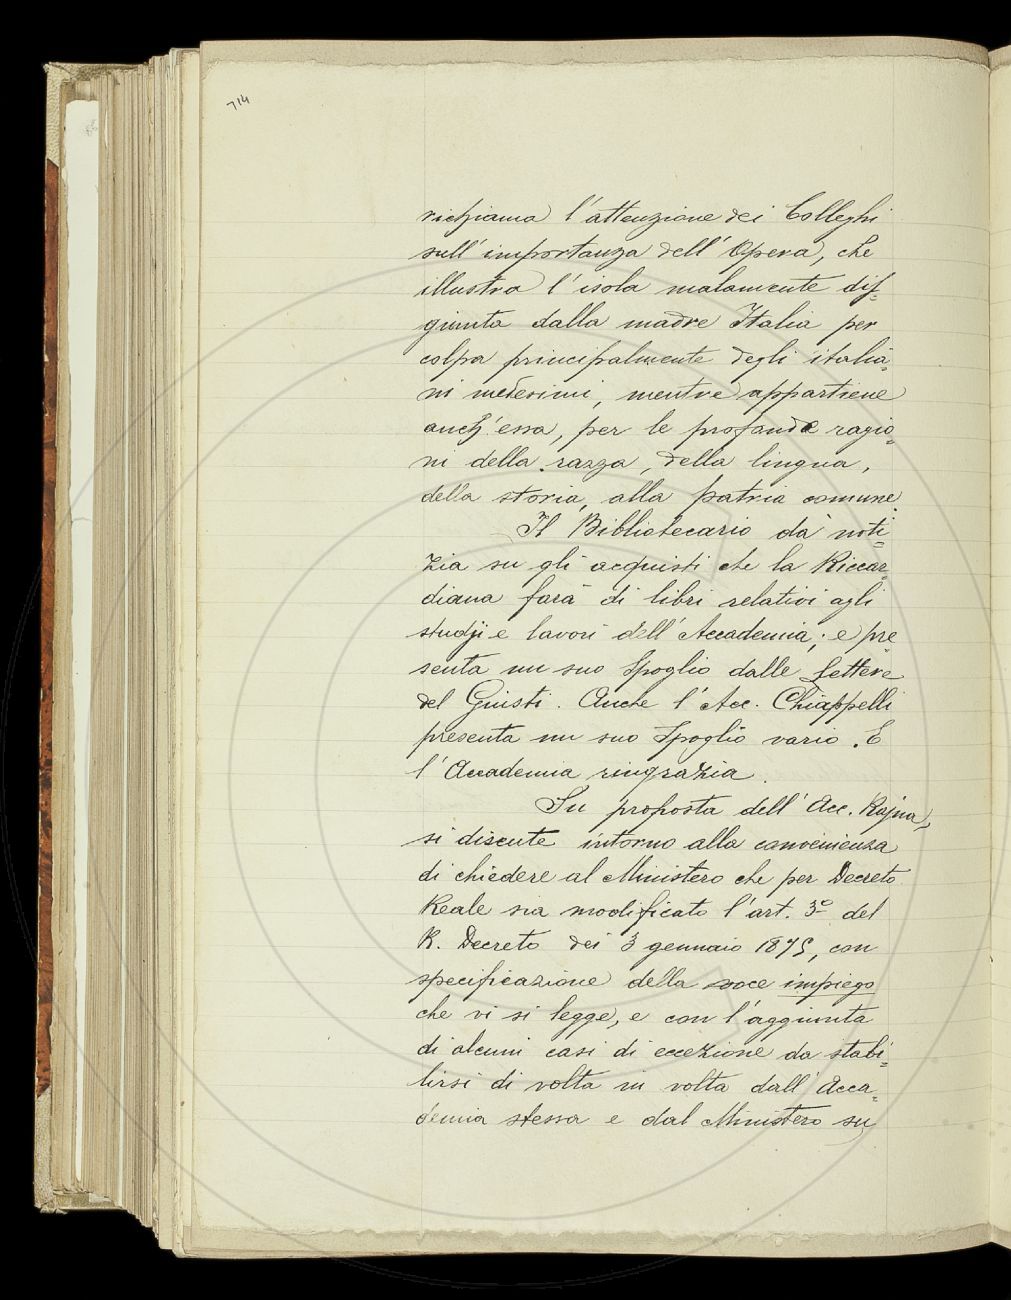 714
richiama l'attenzione dei Colleghi
sull'importanza dell'Opera, che
illustra l'isola malamente dis=
giunta dalla madre Italia per
colpa principalmente degli italia=
ni medesimi, mentre appartiene
anch'essa, per le profonde ragio=
ni della razza, della lingua,
della storia, alla patria comune.
Il Bibliotecario dà noti=
zia su gli acquisti che la Riccar=
diana farà di libri relativi agli
studj e lavori dell'Accademia; e pre
senta un suo Spoglio dalle Lettere
del Giusti. Anche l'Acc. Chiappelli
presenta un suo Spoglio vario. E
l'Accademia ringrazia.
Su proposta dell'Acc. Rajna,
si discute intorno alla convenienza
di chiedere al Ministero che per Decreto
Reale sia modificato l'art. 3º del
R. Decreto dei 3 gennaio 1875, con
specificazione della voce impiego
che vi si legge, e con l'aggiunta
di alcuni casi di eccezione da stabi=
lirsi di volta in volta dall'Acca=
demia stessa e dal Ministero su